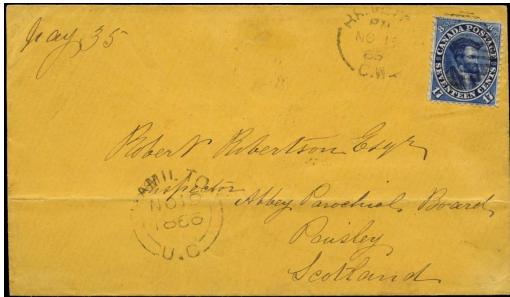 Jay, 35
HAMILTON
PM
NO 15
65
C.W.
CANADA POSTAGE
17 SEVENTEEN CENTS 17
Robert Robertson Esqr
Inspector
Abbey Parochial Board
Paisley
Scotland
HAMILTON
NO 15
1866
U.C.